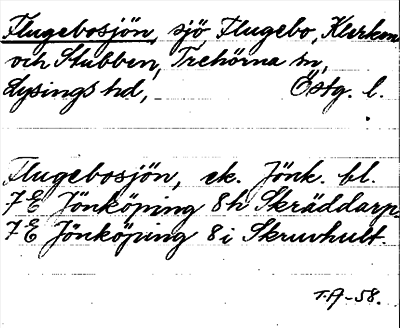 Flugebosjön, sjö Flugebo, Klerkom
och Stubben, Trehörna sn,
Lysings hd, Östg. l.
Flugebosjön, ek. Jönk. bl.
7E Jönköping 8h Skräddarp.
7E Jönköping 8i Skruvhult.
T.A-58.